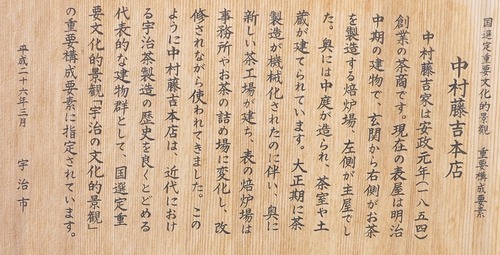 国選定重要文化的景観　重要構成要素
中村藤吉本店
中村藤吉家は安政元年(一八五四)
創業の茶商です。現在の表屋は明治
中期の建物で、玄関から右側がお茶
を製造する焙炉場、左側が主屋でし
た。奥には中庭が造られ、茶室や土
蔵が建てられています。大正期に茶
製造が機械化されたのに伴い、奥に
新しい茶工場が建ち、表の焙炉場は
事務所やお茶の詰め場に変化し、改
修されながら使われてきました。この
ように中村藤吉本店は、近代におけ
る宇治茶製造の歴史を良くとどめる
代表的な建物群として、国選定重
要文化的景観「宇治の文化的景観」
の重要構成要素に指定されています。
平成二十六年三月　宇治市